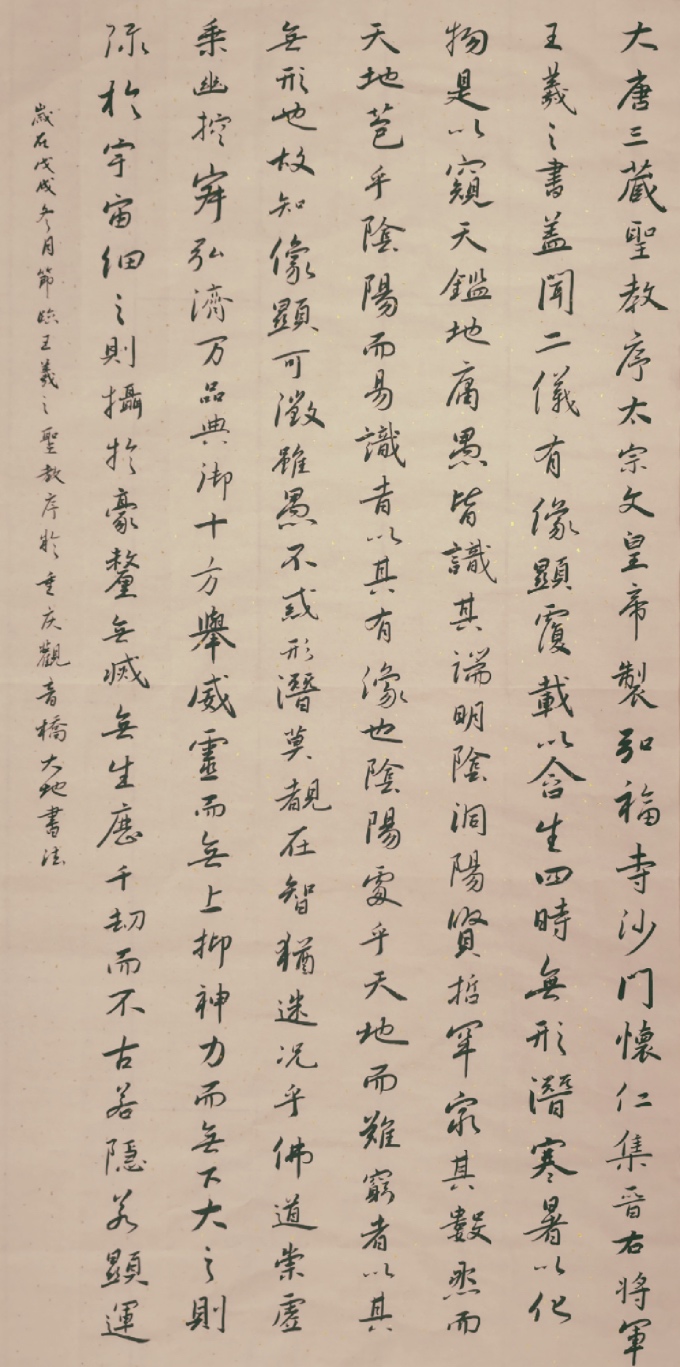 大唐三藏聖教序太宗文皇帝製弘福寺沙門懷仁集晉右將軍
王羲之書蓋聞二儀有像顯覆載以含生四時無形潛寒暑以化
物是以窺天鑑地庸愚皆識其端明陰洞陽賢哲罕窮其數然而
天地苞乎陰陽而易識者以其有像也陰陽處乎天地而難窮者以其
無形也故知像顯可徵雖愚不惑形潛莫覩在智猶迷況乎佛道崇虛
乘幽控寂弘濟万品典御十方舉威靈而無上抑神力而無下大之則
彌於宇宙細之則攝於豪釐無滅無生歷千劫而不古若隱若顯運
歲在戊戌冬月節臨王羲之聖教序於重庆觀音橋大地書法